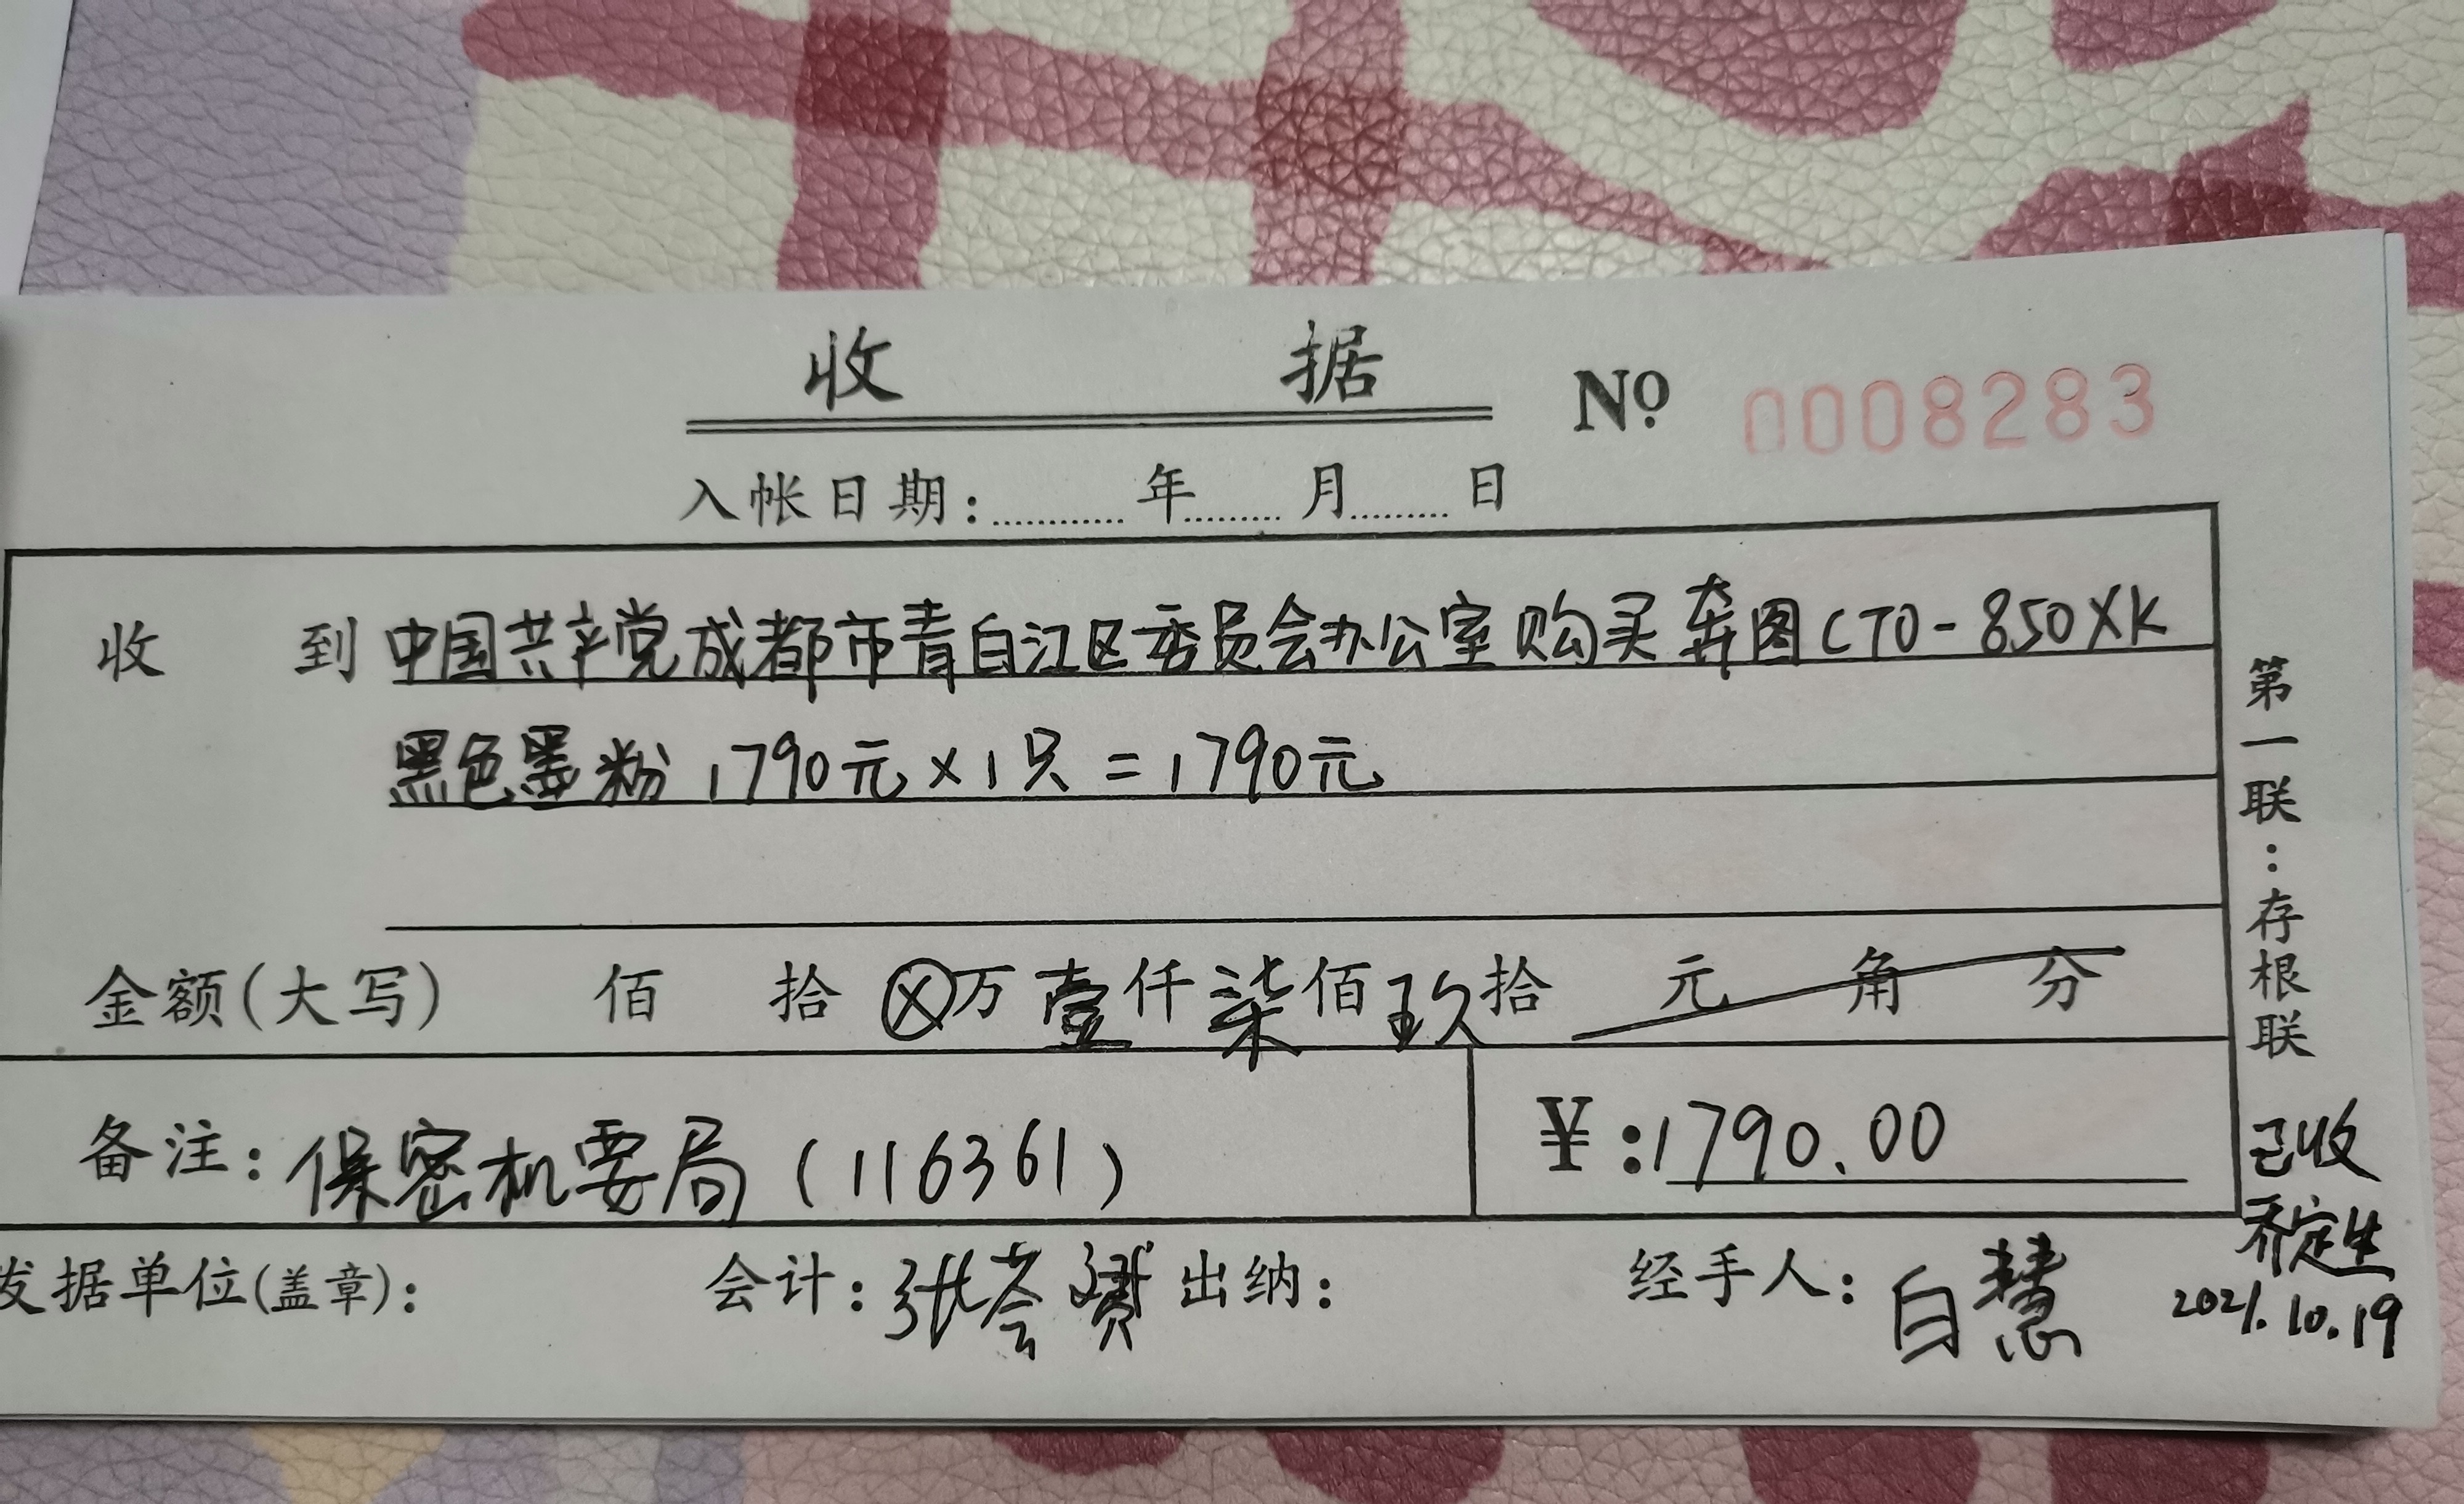 收据 No 0008283
入帐日期: 年 月 日
收到 中国共产党成都市青白江区委员会办公室购买奔图CTO-850XK
黑色墨粉 1790元×1只=1790元
金额(大写) 佰 拾 ⊗万壹仟柒佰玖拾 元 角 分
备注:保密机要局(116361)
¥:1790.00
发据单位(盖章): 会计:张荟赟 出纳: 经手人:白慧
第一联:存根联
已收
乔定生
2021.10.19